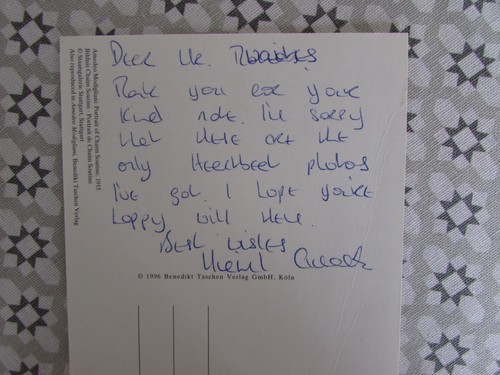 Dear Mr.
Thank you for your
kind note. I'm sorry
that these are the
only Heartbeat photos
I've got. I hope you're
happy with them.
Best wishes
© 1996 Benedikt Taschen Verlag GmbH, Köln
Amedeo Modigliani: Portrait of Chaim Soutine, 1915
Bildnis Chaim Soutine · Portrait de Chaim Soutine
© Staatsgalerie Stuttgart, Stuttgart
Also reproduced in Amedeo Modigliani, Benedikt Taschen Verlag